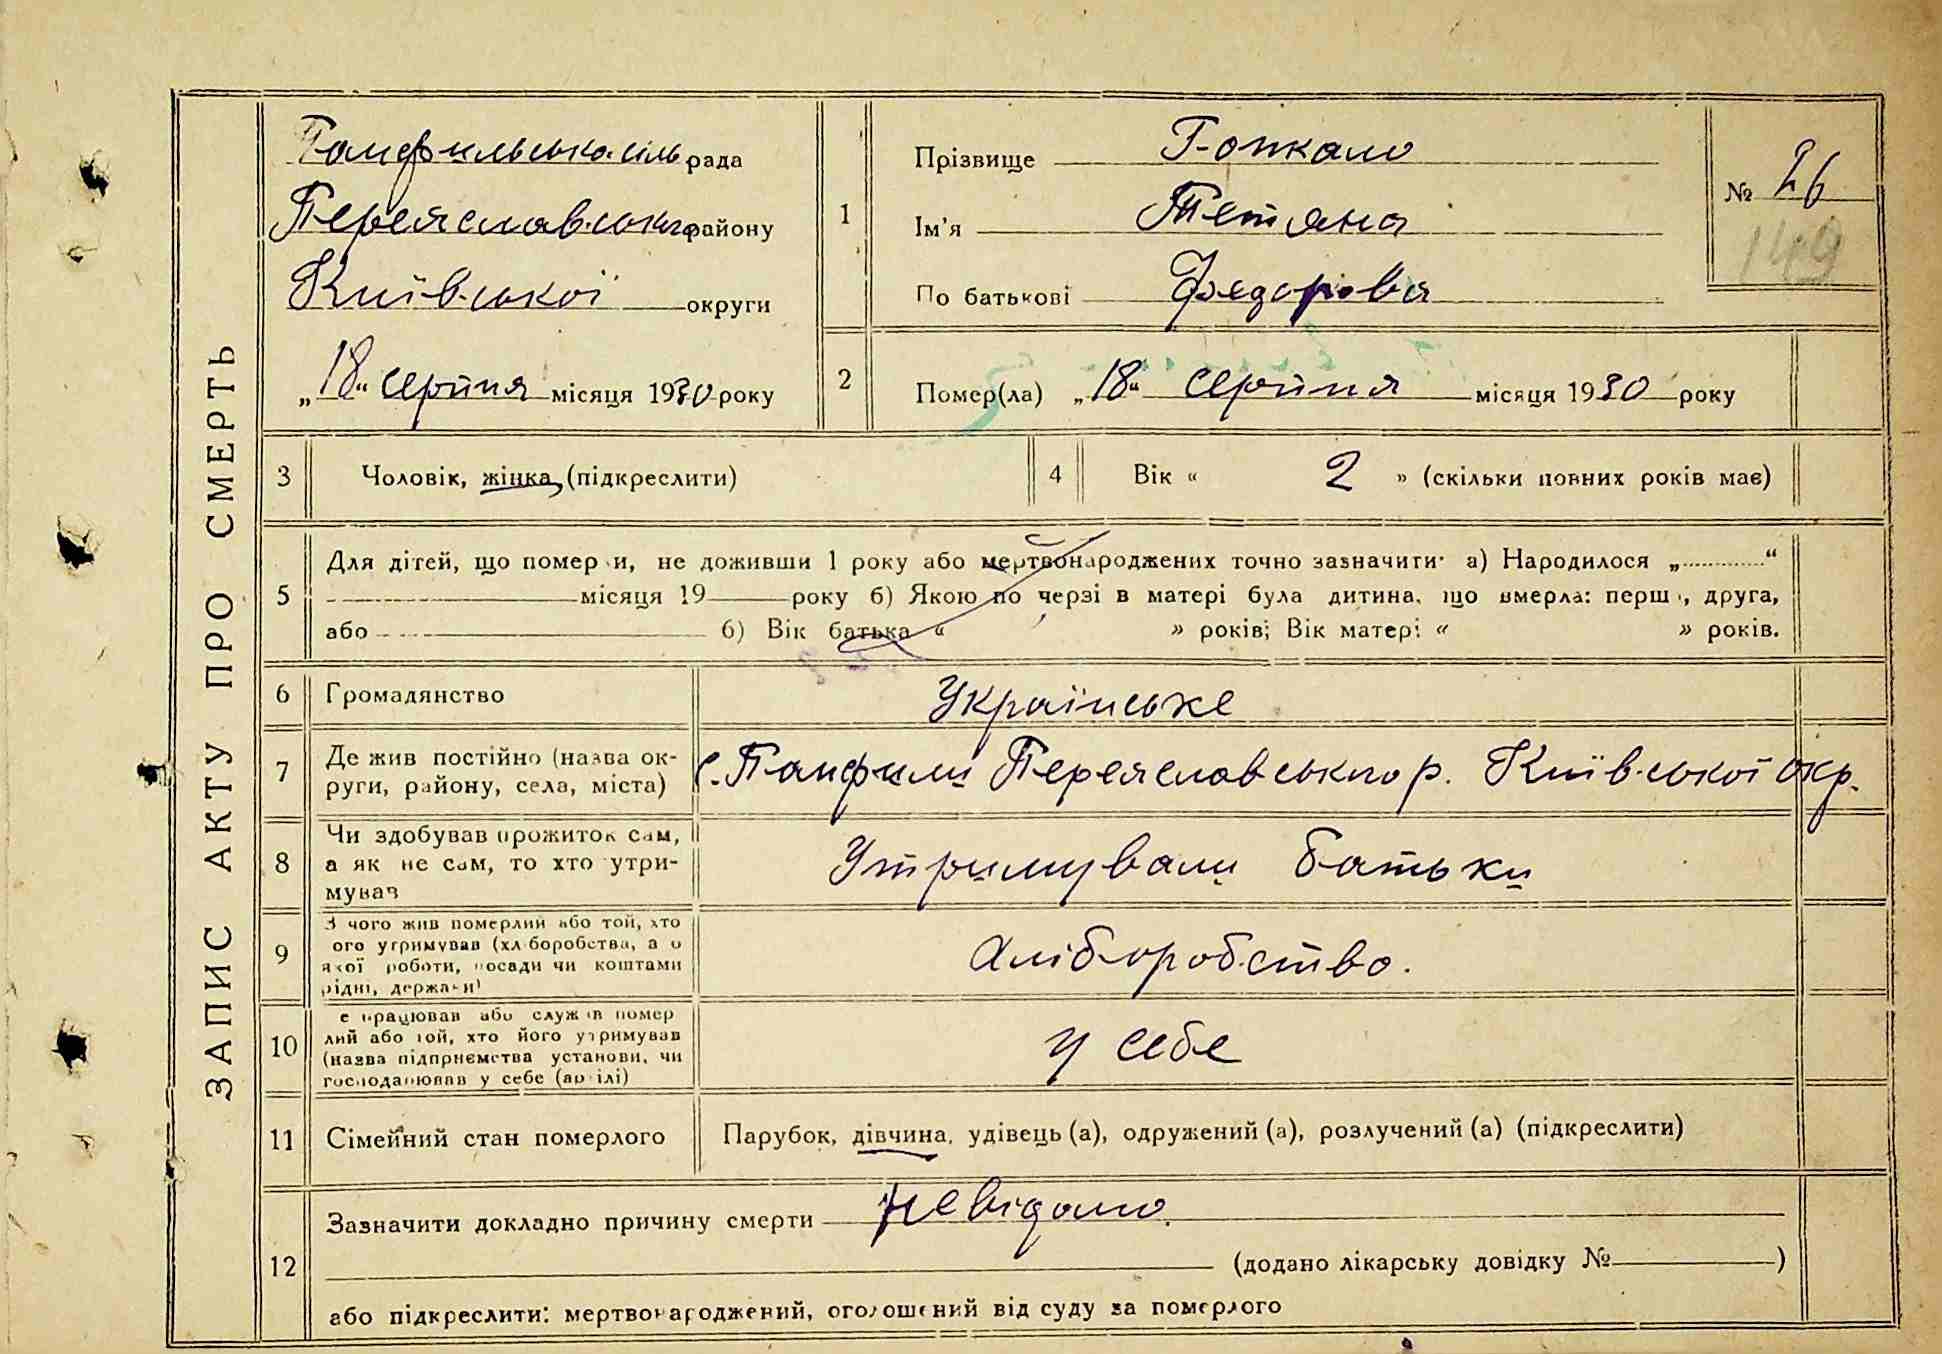 ЗАПИС АКТУ ПРО СМЕРТЬ
Памфильська сіль рада
Переяславського району
Київської округи
„18“ серпня місяця 1930 року
1
Прізвище Гопкало
Ім'я Тетяна
По батькові Федорівна
№ 26
149
2
Помер(ла) „18“ серпня місяця 1930 року
3 Чоловік, жінка, (підкреслити)
4 Вік « 2 » (скільки повних років має)
5
Для дітей, що померли, не доживши 1 року або мертвонароджених точно зазначити: а) Народилося „ “
місяця 19 року б) Якою по черзі в матері була дитина, що вмерла: перша, друга,
або б) Вік батька « » років; Вік матері « » років.
6 Громадянство Українське
7 Де жив постійно (назва ок-
руги, району, села, міста) с. Памфили Переяславського р. Київської окр.
8 Чи здобував прожиток сам,
а як не сам, то хто утри-
мував Утримували батьки
9 З чого жив померлий або той, хто
його утримував (хліборобства, або
якої роботи, посади чи коштами
рідні, держави) Хліборобство.
10 Де працював або служив помер
лий або той, хто його утримував
(назва підприємства установи, чи
господарював у себе (артілі) у себе
11 Сімейний стан померлого Парубок, дівчина, удівець (а), одружений (а), розлучений (а) (підкреслити)
12
Зазначити докладно причину смерти невідомо.
(додано лікарську довідку № )
або підкреслити: мертвонароджений, оголошений від суду за померлого